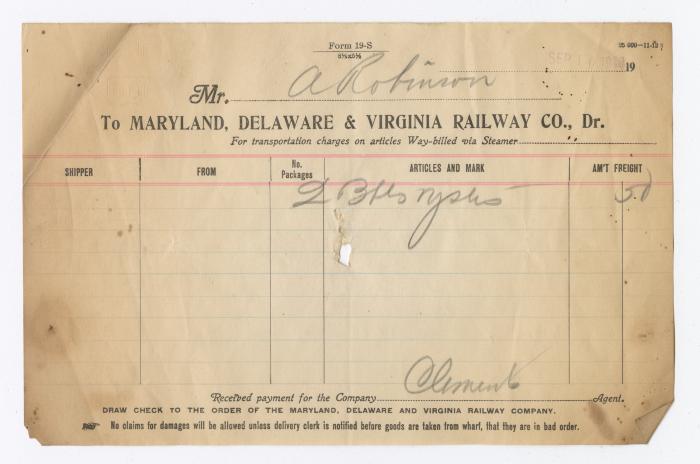 Form 19-S
5½x8½
25 000-11-12
SEP 19
Mr. A Robinson
To MARYLAND, DELAWARE & VIRGINIA RAILWAY CO., Dr.
For transportation charges on articles Way-billed via Steamer
SHIPPER FROM No. Packages ARTICLES AND MARK AM'T FREIGHT
2 Bbls 50
Clements
Received payment for the Company Agent.
DRAW CHECK TO THE ORDER OF THE MARYLAND, DELAWARE AND VIRGINIA RAILWAY COMPANY.
No claims for damages will be allowed unless delivery clerk is notified before goods are taken from wharf, that they are in bad order.